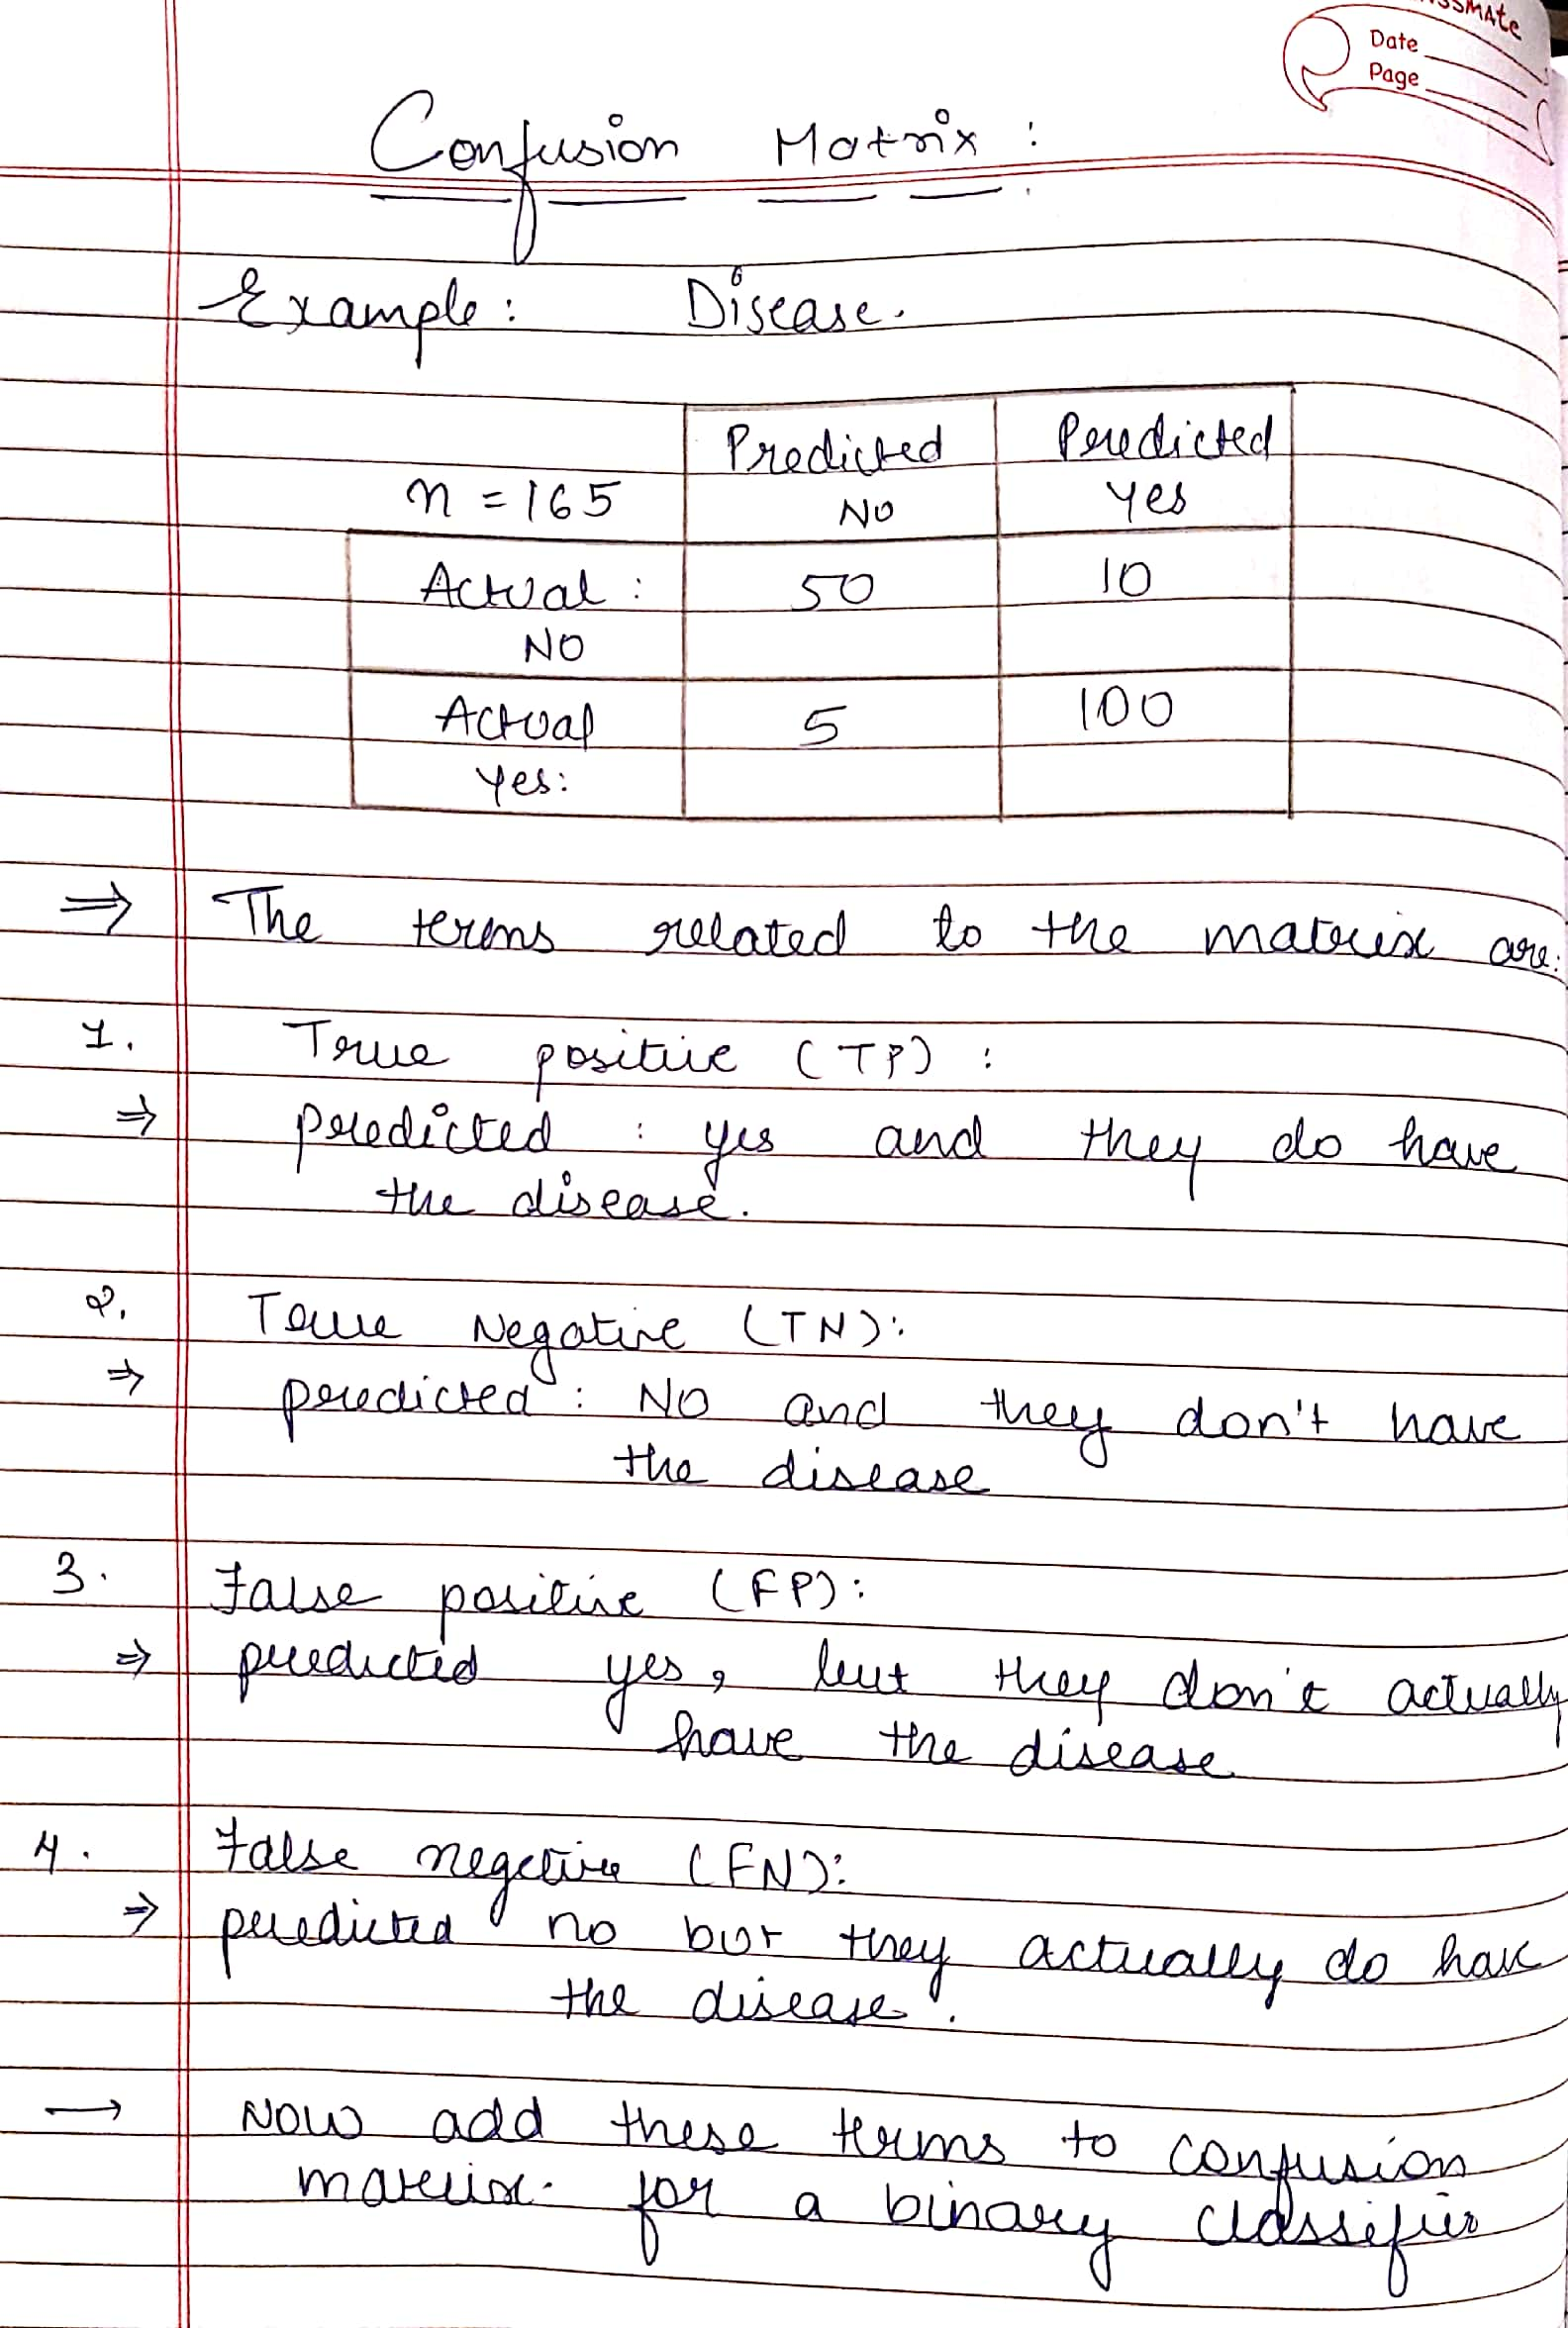 Date
Page
Confusion Matrix :
Example : Disease.
Predicted Predicted
n = 165 NO Yes
Actual : 50 10
NO
Actual 5 100
Yes:
⇒ The terms related to the matrix are:
1. True positive (TP) :
⇒ predicted : yes and they do have
the disease.
2. True Negative (TN):
⇒ predicted : NO and they don't have
the disease
3. False positive (FP):
⇒ predicted yes, but they don't actually
have the disease
4. False negative (FN):
⇒ predicted no but they actually do have
the disease.
→ NOW add these terms to confusion
matrix. for a binary classifier